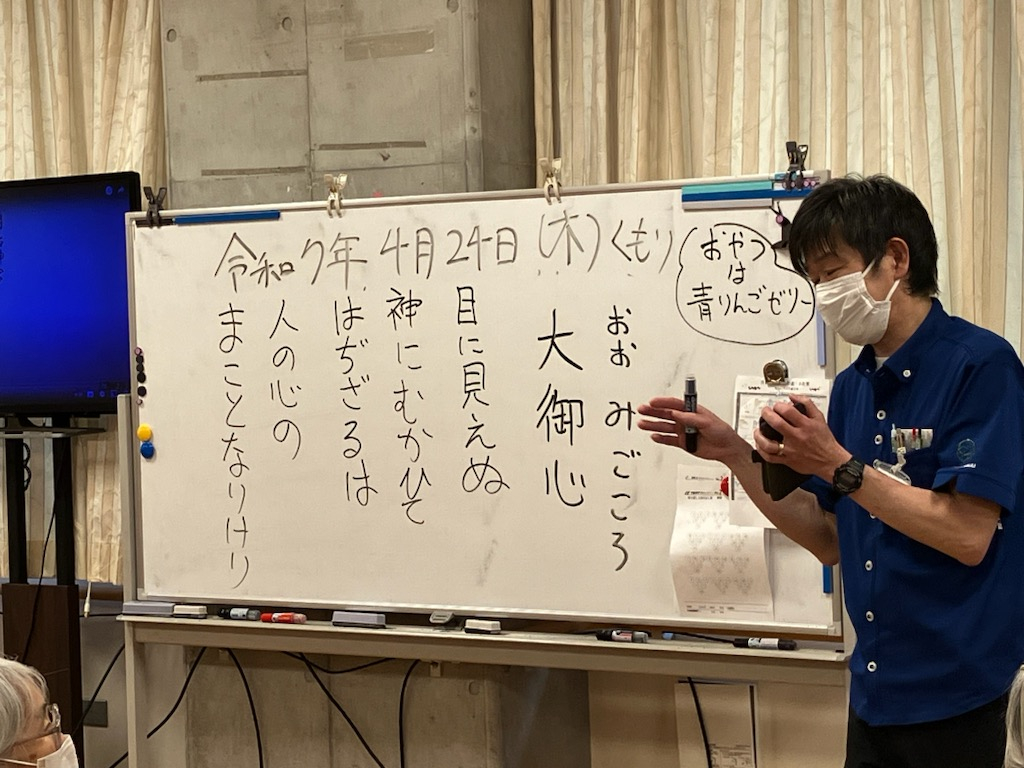 令和7年 4月24日(木)くもり
おやつ
は
青りんごゼリー
おおみごころ
大御心
目に見えぬ
神にむかひて
はぢざるは
人の心の
まことなりけり